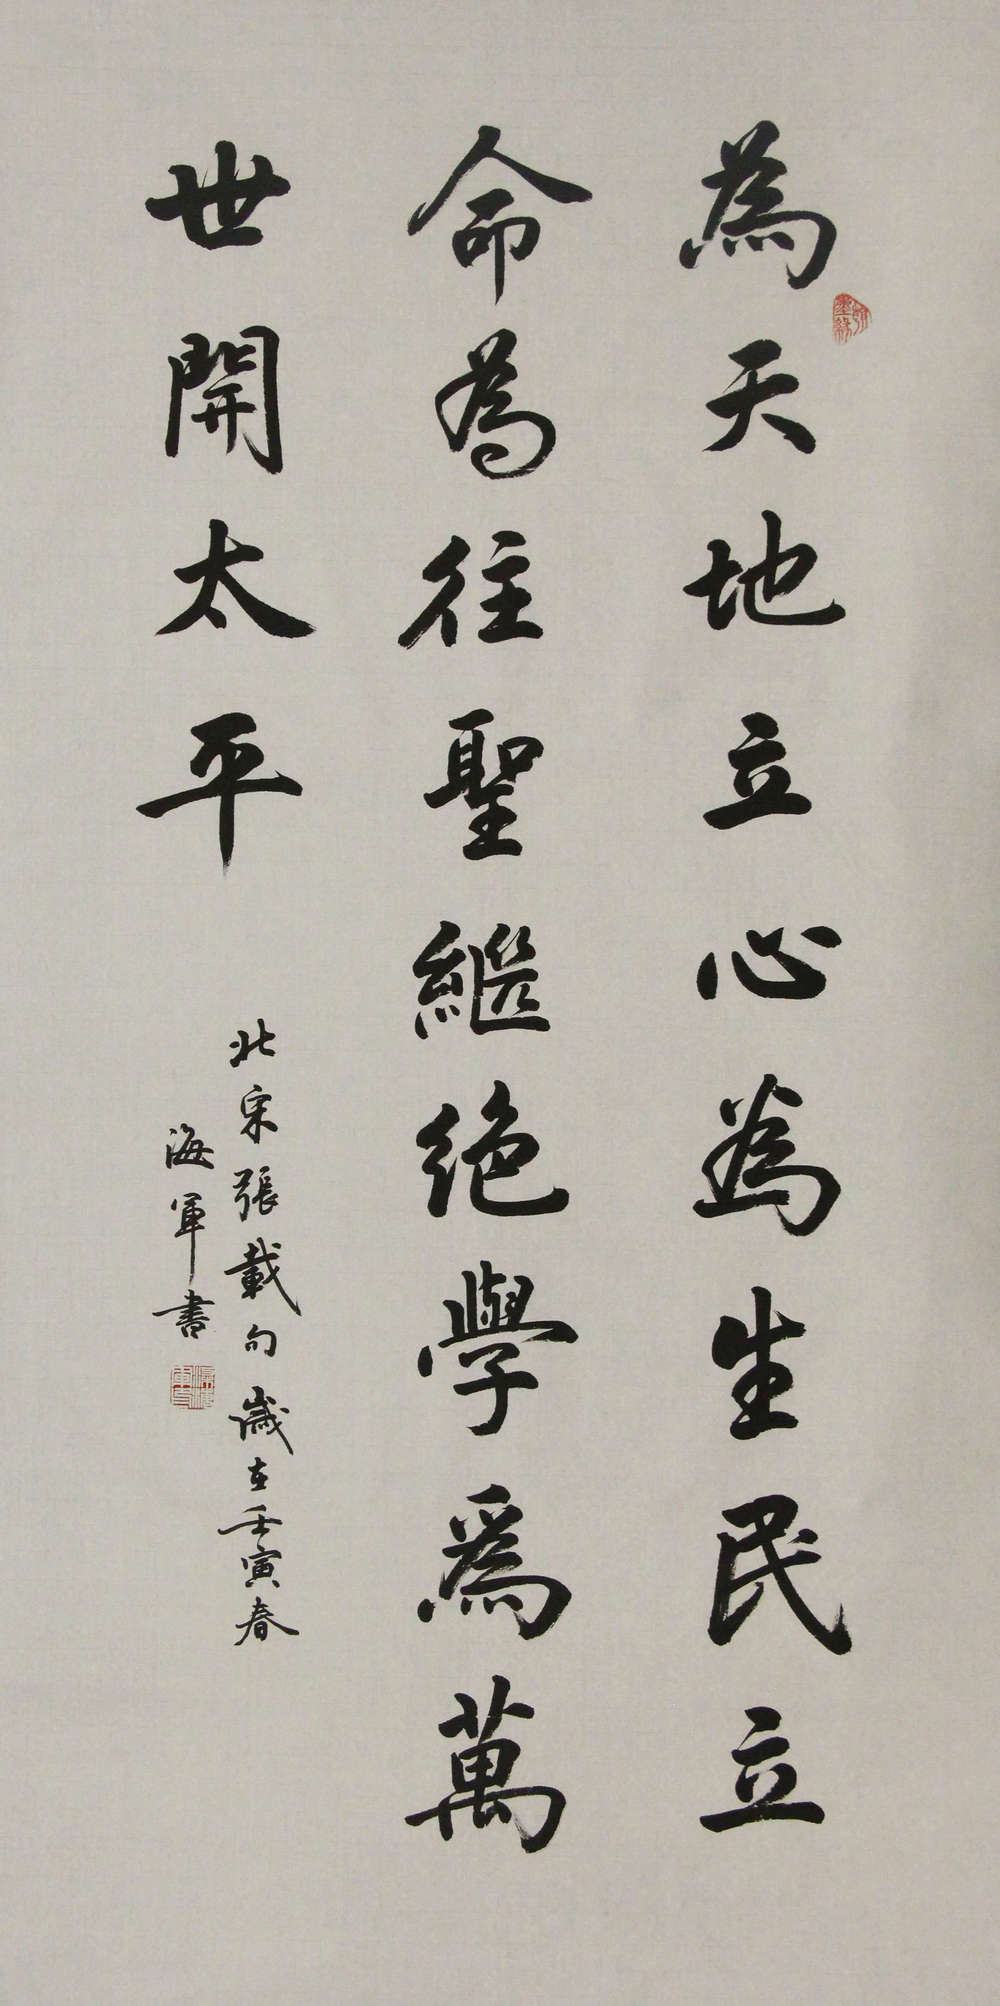 為天地立心為生民立
命為往聖繼絕學爲萬
世開太平
北宋張載句歲在壬寅春
海軍書